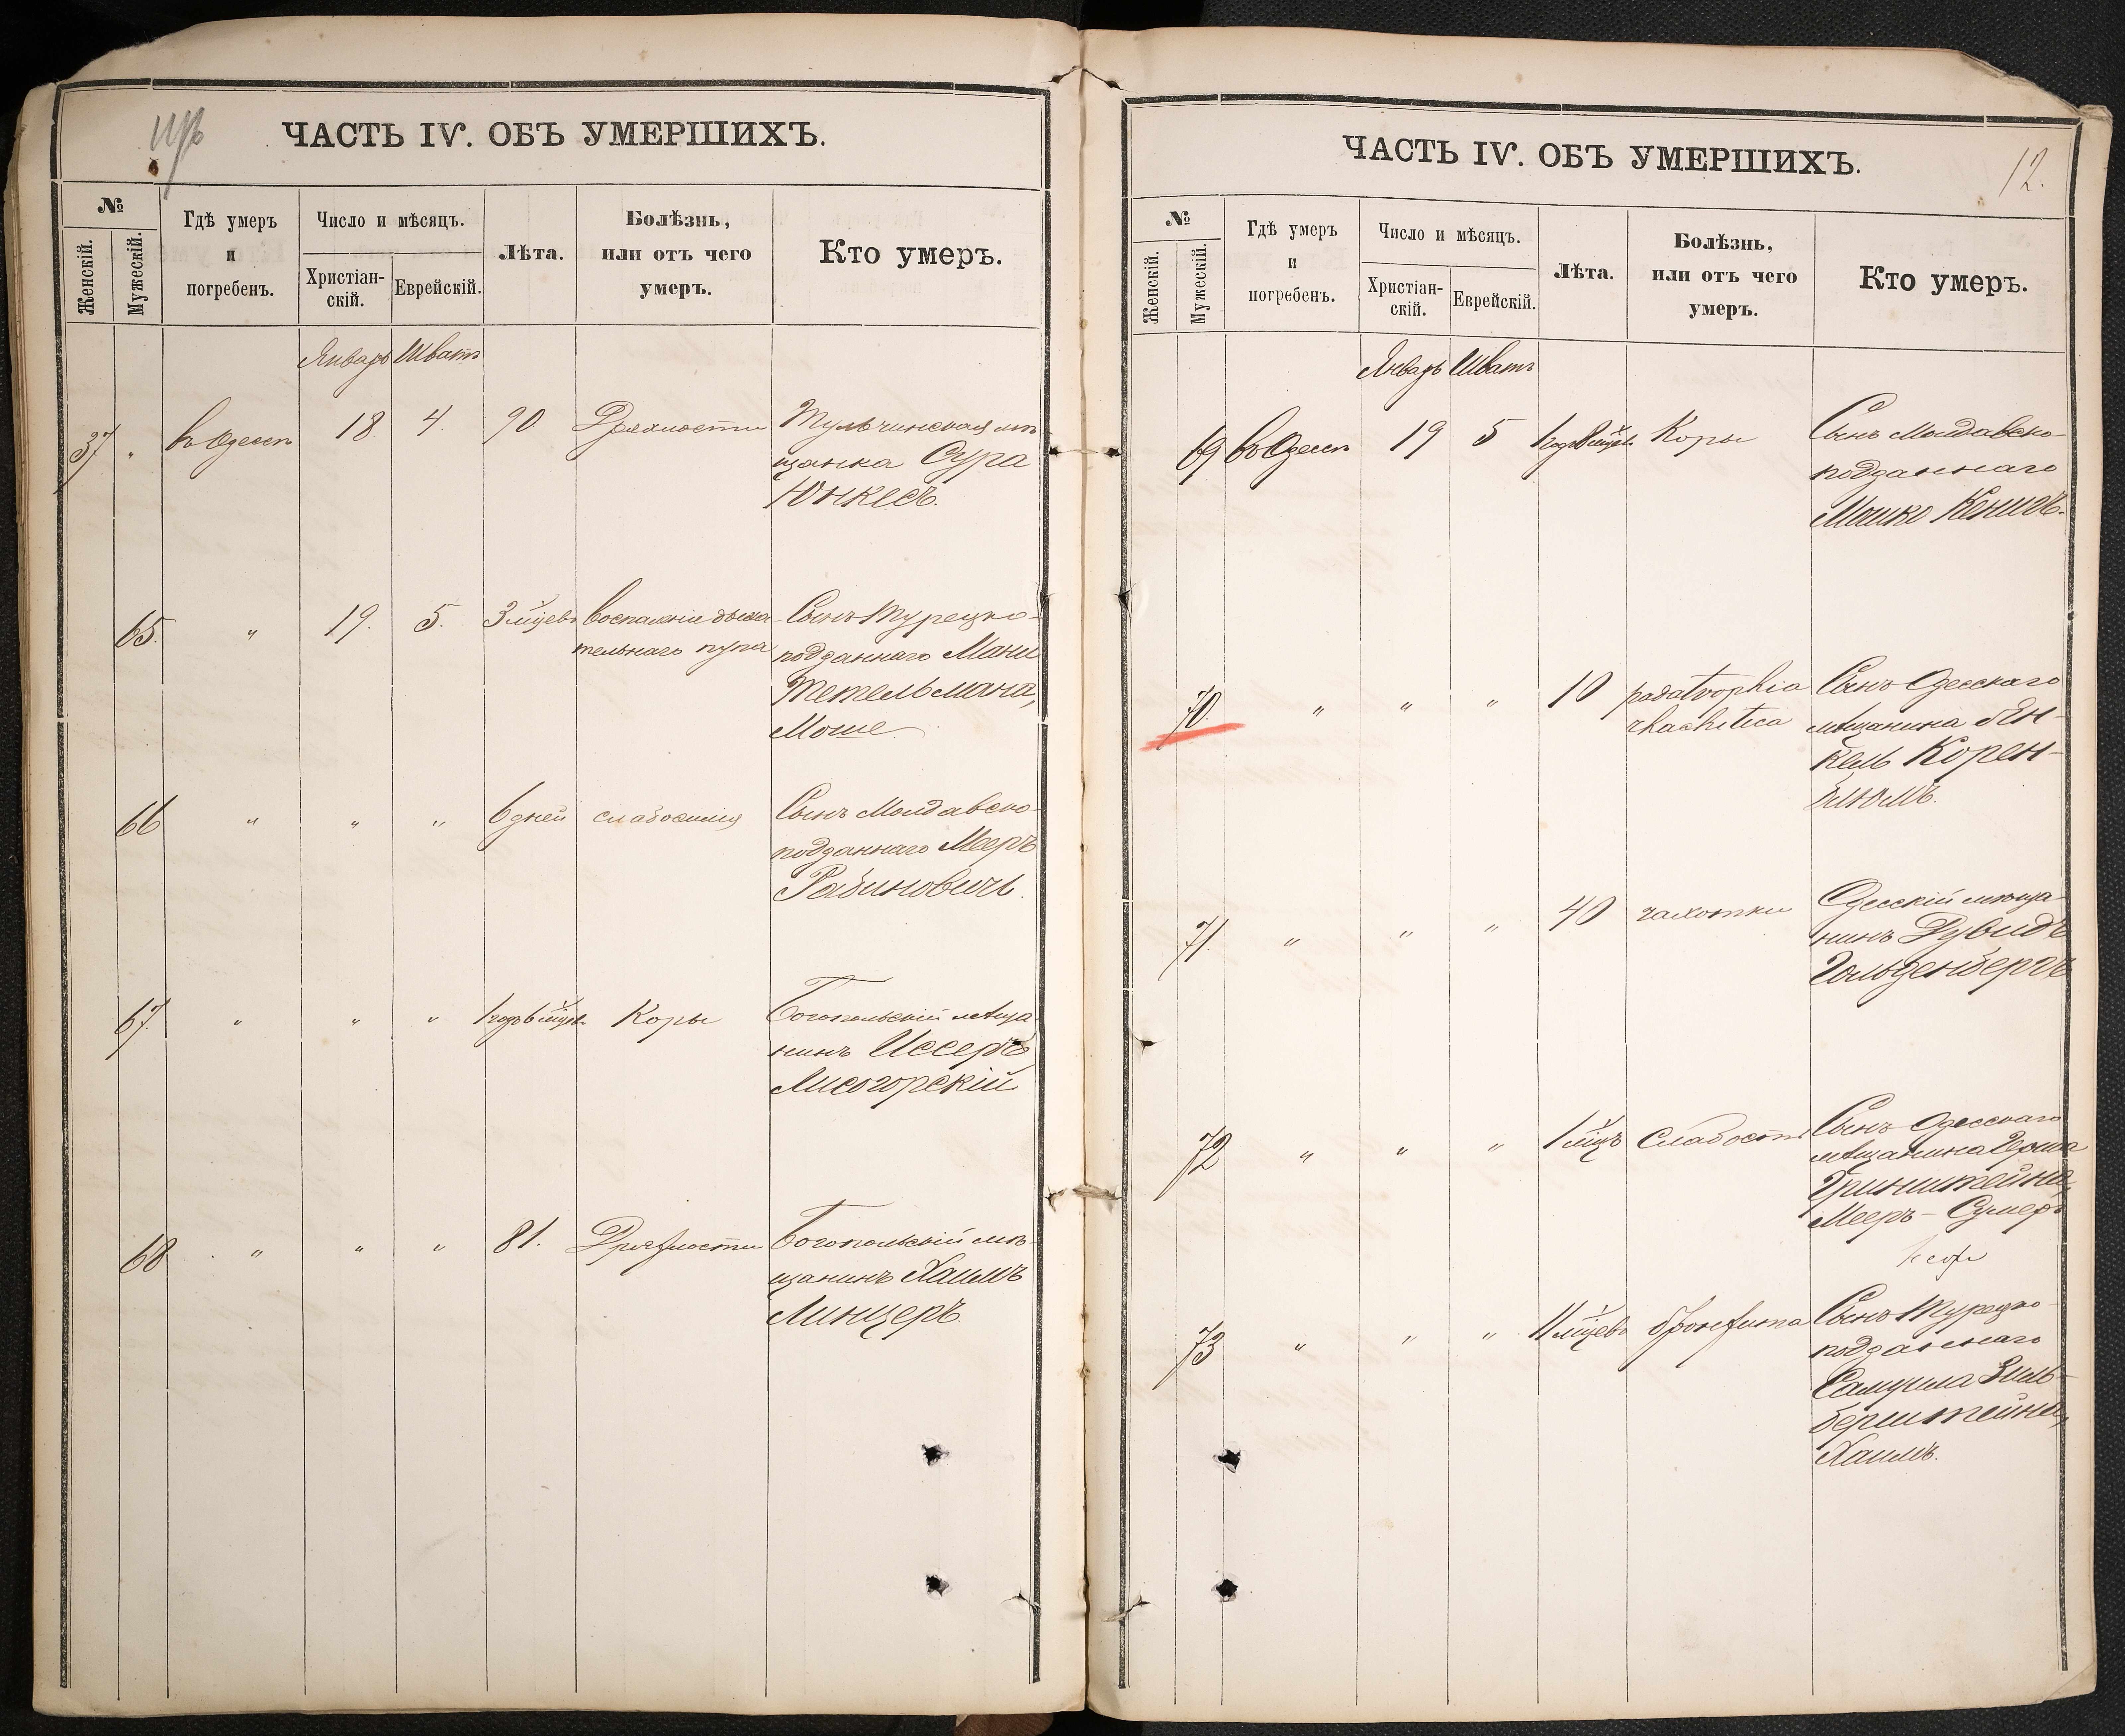 ЧАСТЬ IV. ОБЪ УМЕРШИХЪ.
№
Женскій.
Мужескій.
Гдѣ умеръ
и
погребенъ.
Число и мѣсяцъ.
Христіан-
скій.
Еврейскій.
Лѣта.
Болѣзнь,
или отъ чего
умеръ.
Кто умеръ.
Январь Шватъ
37 " въ Одессѣ 18 4. 90 Дряхлости Тульчинская мѣ
щанка Сура
Юнкесъ.
65. " 19. 5. 3 мѣцевъ воспаленіе дыха Сынъ Турецко-
тельнаго пути подданнаго Мани
Тетельмана,
Моше
66 " " " 6 дней слабосилія Сынъ Молдавско-
подданнаго Мееръ
Рабиновичъ.
67. " " " 1 годъ 6 мѣцевъ Коры Богопольскій мѣща
нинъ Иссеръ
Лисогорскій
68 " " " 81. Дряхлости Богопольскій мѣ-
щанинъ Хаимъ
Линцеръ.
ЧАСТЬ IV. ОБЪ УМЕРШИХЪ.
12.
№
Женскій.
Мужескій.
Гдѣ умеръ
и
погребенъ.
Число и мѣсяцъ.
Христіан-
скій.
Еврейскій.
Лѣта.
Болѣзнь,
или отъ чего
умеръ.
Кто умеръ.
Январь Шватъ
69 въ Одессѣ 19 5 1 годъ 8 мѣцевъ Коры Сынъ Молдавско-
подданнаго
Мошко Кенигъ.
70. " " " 10 padatrophia Сынъ Одесскаго
rhachitica мѣщанина Ян-
кель Корен-
блюмъ.
71. " " " 40 чахотки Одесскій мѣща-
нинъ Дувидъ
Гольденбергъ
72 " " " 1 мѣцъ Слабости Сынъ Одесскаго
мѣщанина Герша
Гринштейна,
Мееръ-Сумеръ
73 " " " 11 мѣцевъ бронхита Сынъ Турецко-
подданнаго
Самуила Зиль-
берштейна,
Хаимъ.